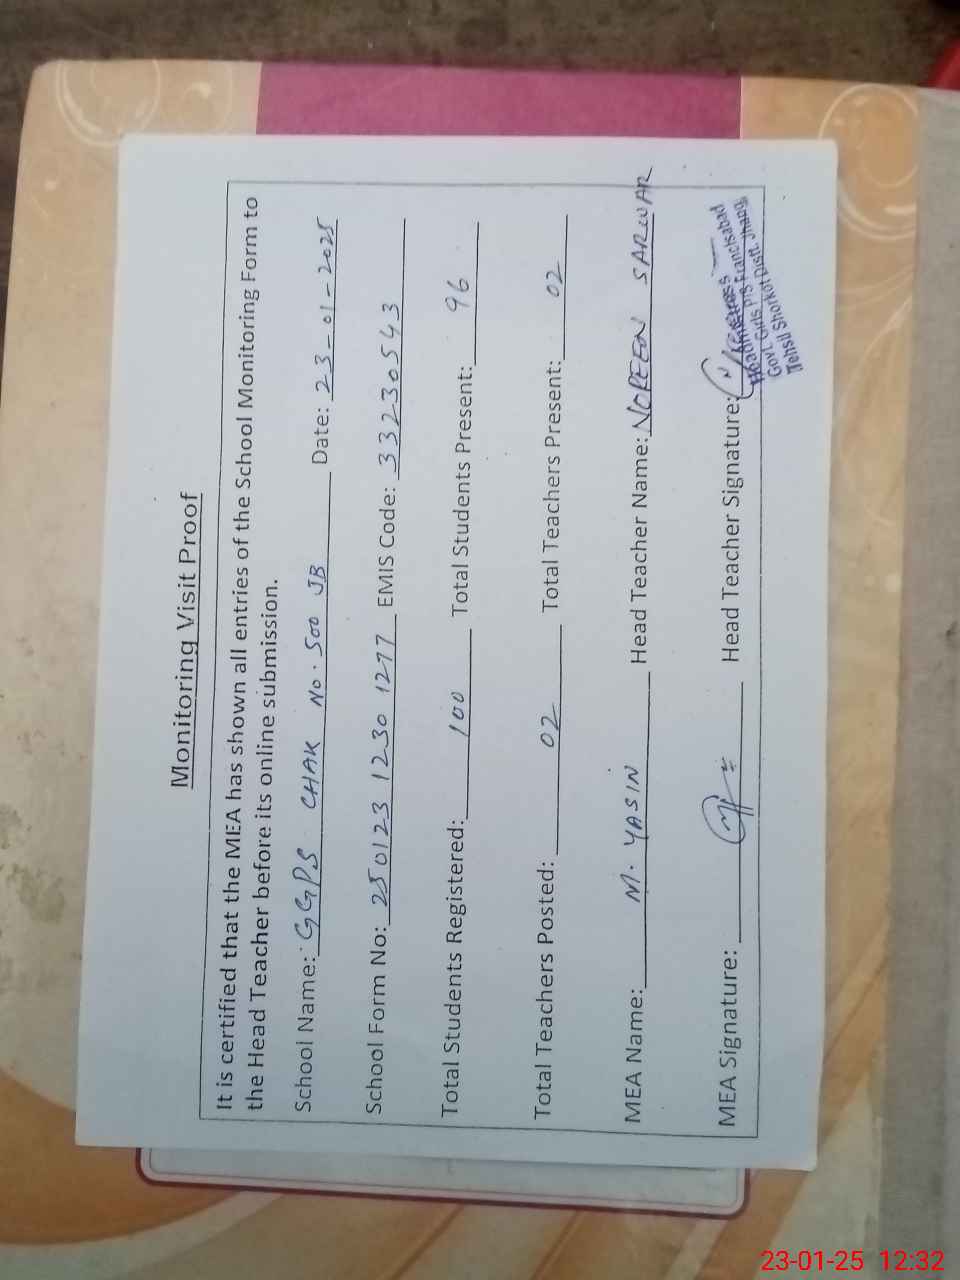 Monitoring Visit Proof
It is certified that the MEA has shown all entries of the School Monitoring Form to
the Head Teacher before its online submission.
School Name: GGPS CHAK No. 500 JB Date: 23-01-2025
School Form No: 250123 1230 1277 EMIS Code: 33230543
Total Students Registered: 100 Total Students Present: 96
Total Teachers Posted: 02 Total Teachers Present: 02
MEA Name: M. YASIN Head Teacher Name: NOREEN SARWAR
MEA Signature: Head Teacher Signature:
Headmistress
Govt. Girls P/S Francisabad
Tehsil Shorkot Distt. Jhang
23-01-25 12:32